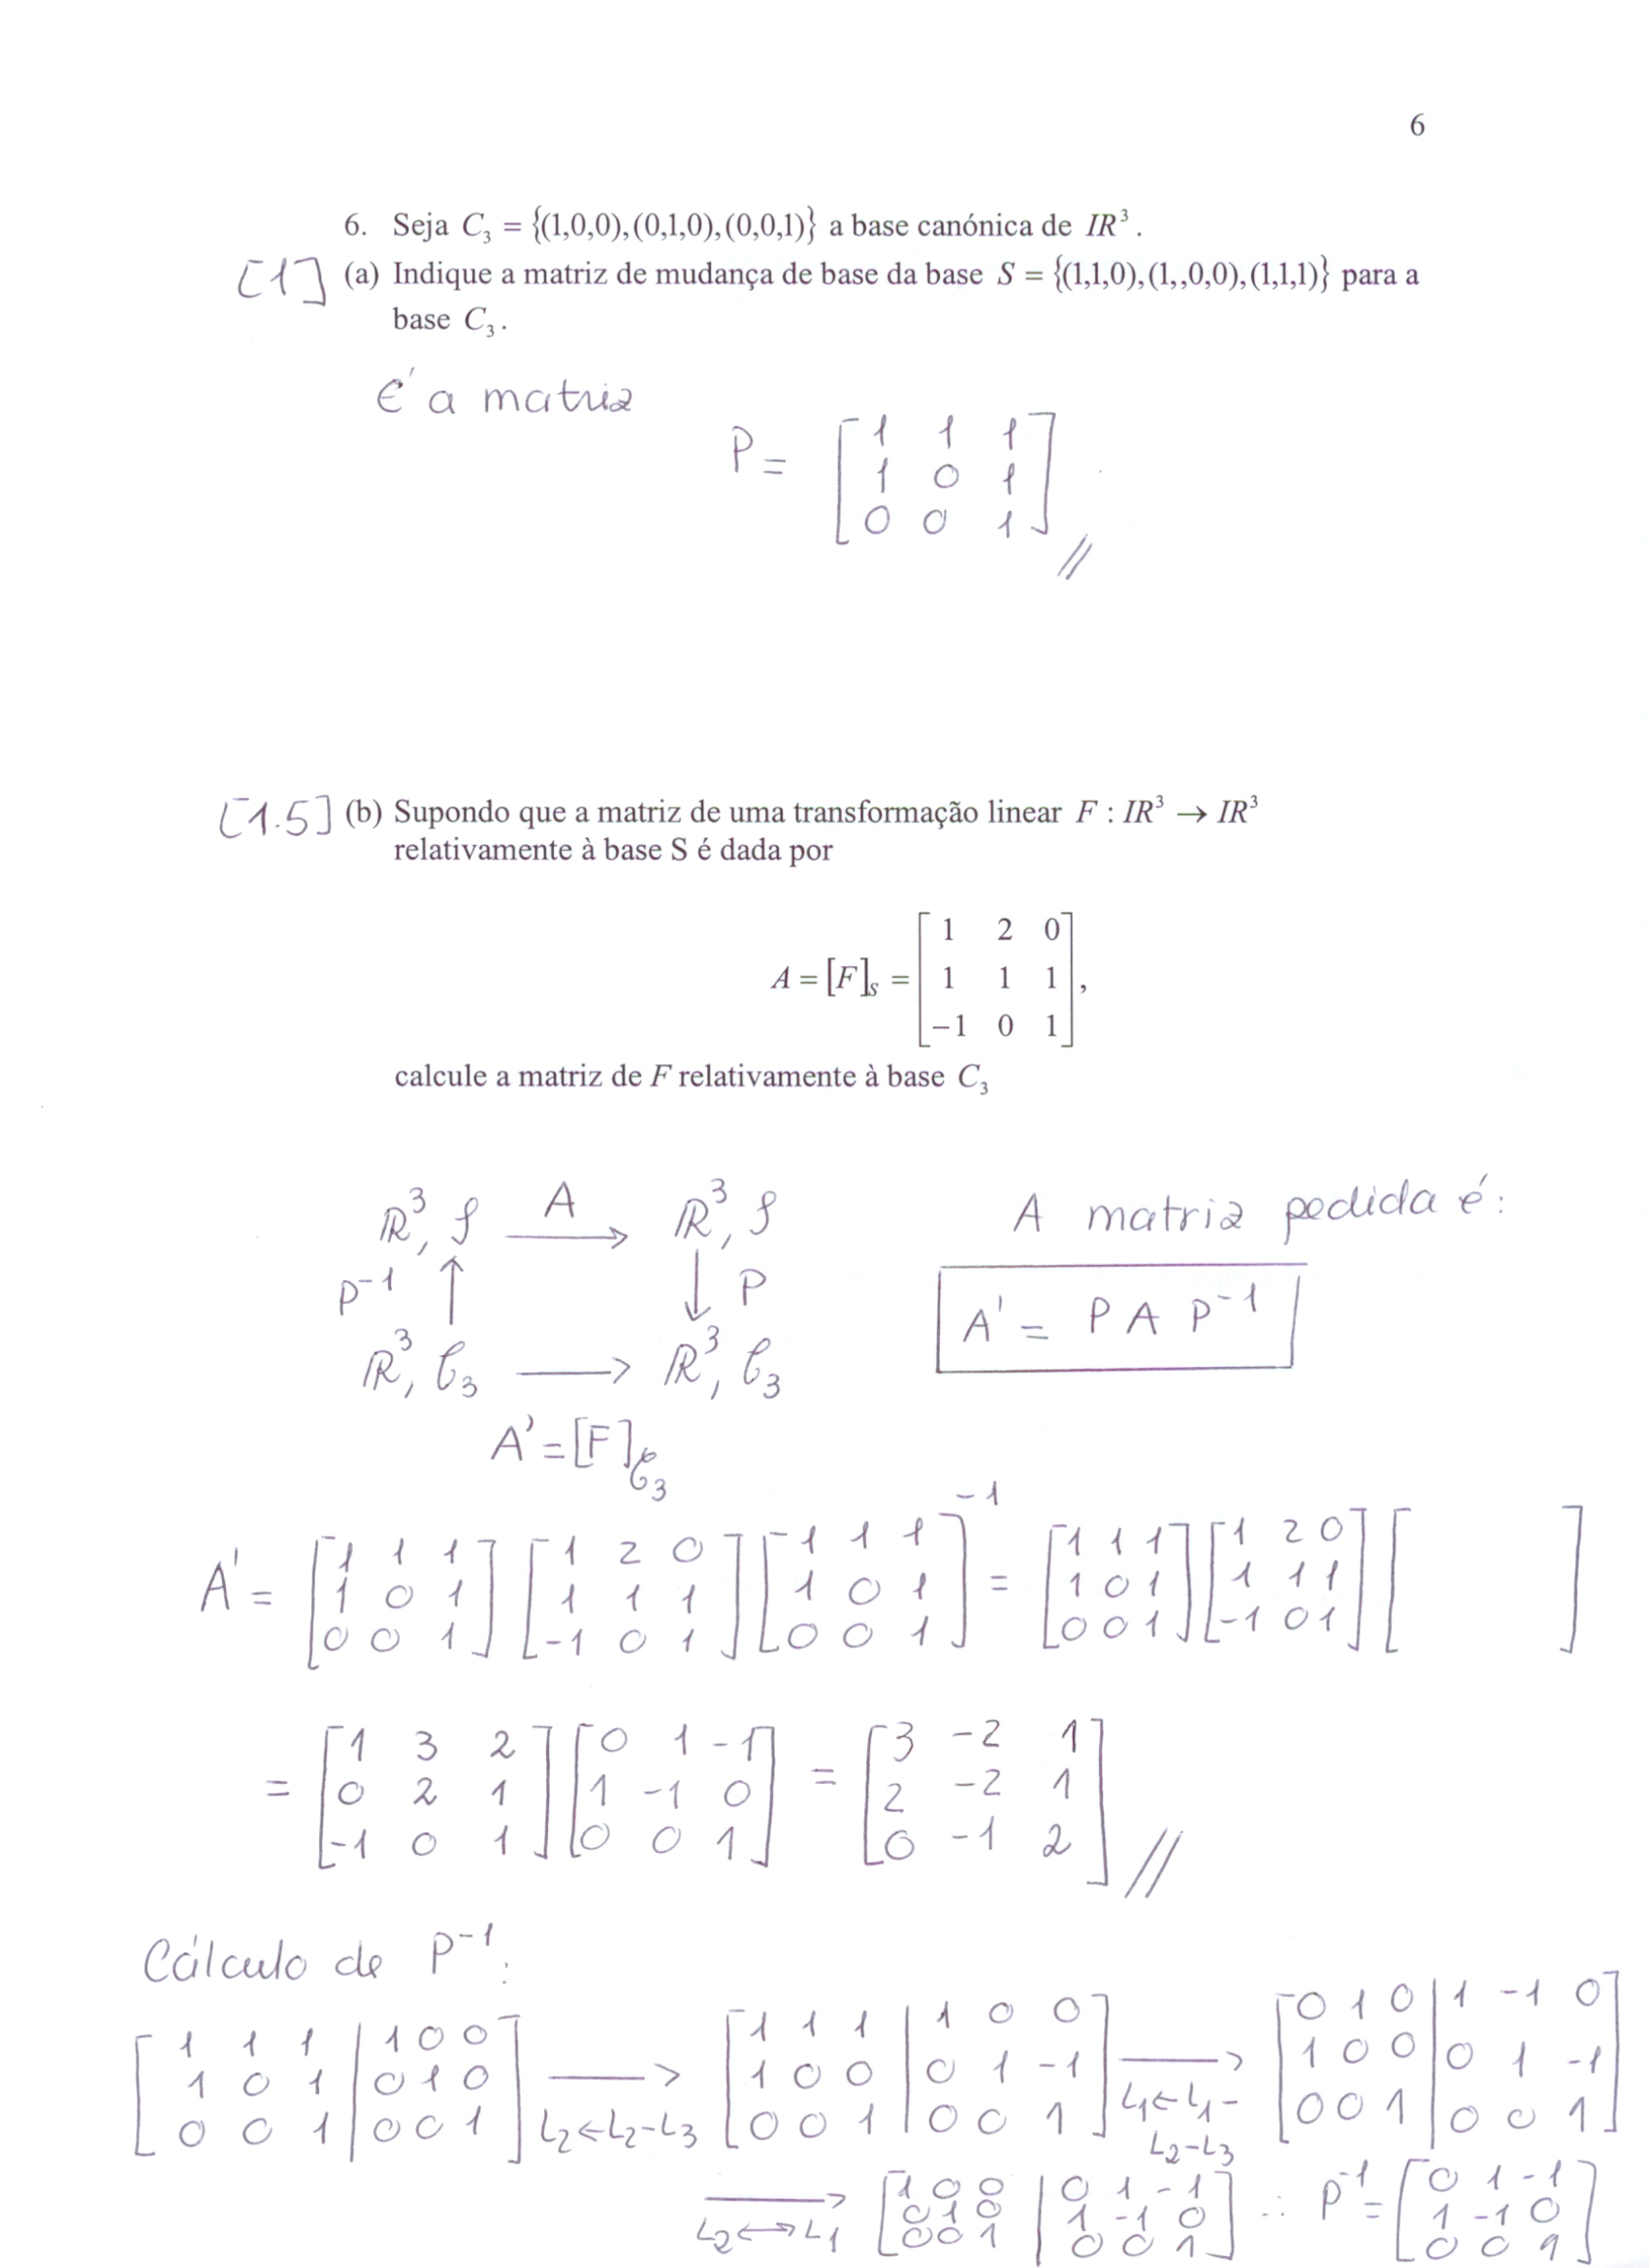 6
6. Seja C₃ = {(1,0,0),(0,1,0),(0,0,1)} a base canónica de IR³.
[1] (a) Indique a matriz de mudança de base da base S = {(1,1,0),(1,,0,0),(1,1,1)} para a
base C₃.
É a matriz
P = [1 1 1; 1 0 1; 0 0 1] //
[1.5] (b) Supondo que a matriz de uma transformação linear F : IR³ → IR³
relativamente à base S é dada por
A = [F]ₛ = [1 2 0; 1 1 1; −1 0 1],
calcule a matriz de F relativamente à base C₃
ℝ³, S —A→ ℝ³, S
A matriz pedida é:
P⁻¹ ↑ ↓ P
A' = P A P⁻¹
ℝ³, C₃ → ℝ³, C₃
A' = [F]C₃
A' = [1 1 1; 1 0 1; 0 0 1] [1 2 0; 1 1 1; -1 0 1] [1 1 1; 1 0 1; 0 0 1]⁻¹ = [1 1 1; 1 0 1; 0 0 1] [1 2 0; 1 1 1; -1 0 1] [ ]
= [1 3 2; 0 2 1; -1 0 1] [0 1 -1; 1 -1 0; 0 0 1] = [3 -2 1; 2 -2 1; 0 -1 2] //
Cálculo de P⁻¹:
[1 1 1 | 1 0 0; 1 0 1 | 0 1 0; 0 0 1 | 0 0 1] → L₂←L₂-L₃ [1 1 1 | 1 0 0; 1 0 0 | 0 1 -1; 0 0 1 | 0 0 1] → L₁←L₁-L₂-L₃ [0 1 0 | 1 -1 0; 1 0 0 | 0 1 -1; 0 0 1 | 0 0 1]
→ L₂↔L₁ [1 0 0 | 0 1 -1; 0 1 0 | 1 -1 0; 0 0 1 | 0 0 1] ∴ P⁻¹ = [0 1 -1; 1 -1 0; 0 0 1]